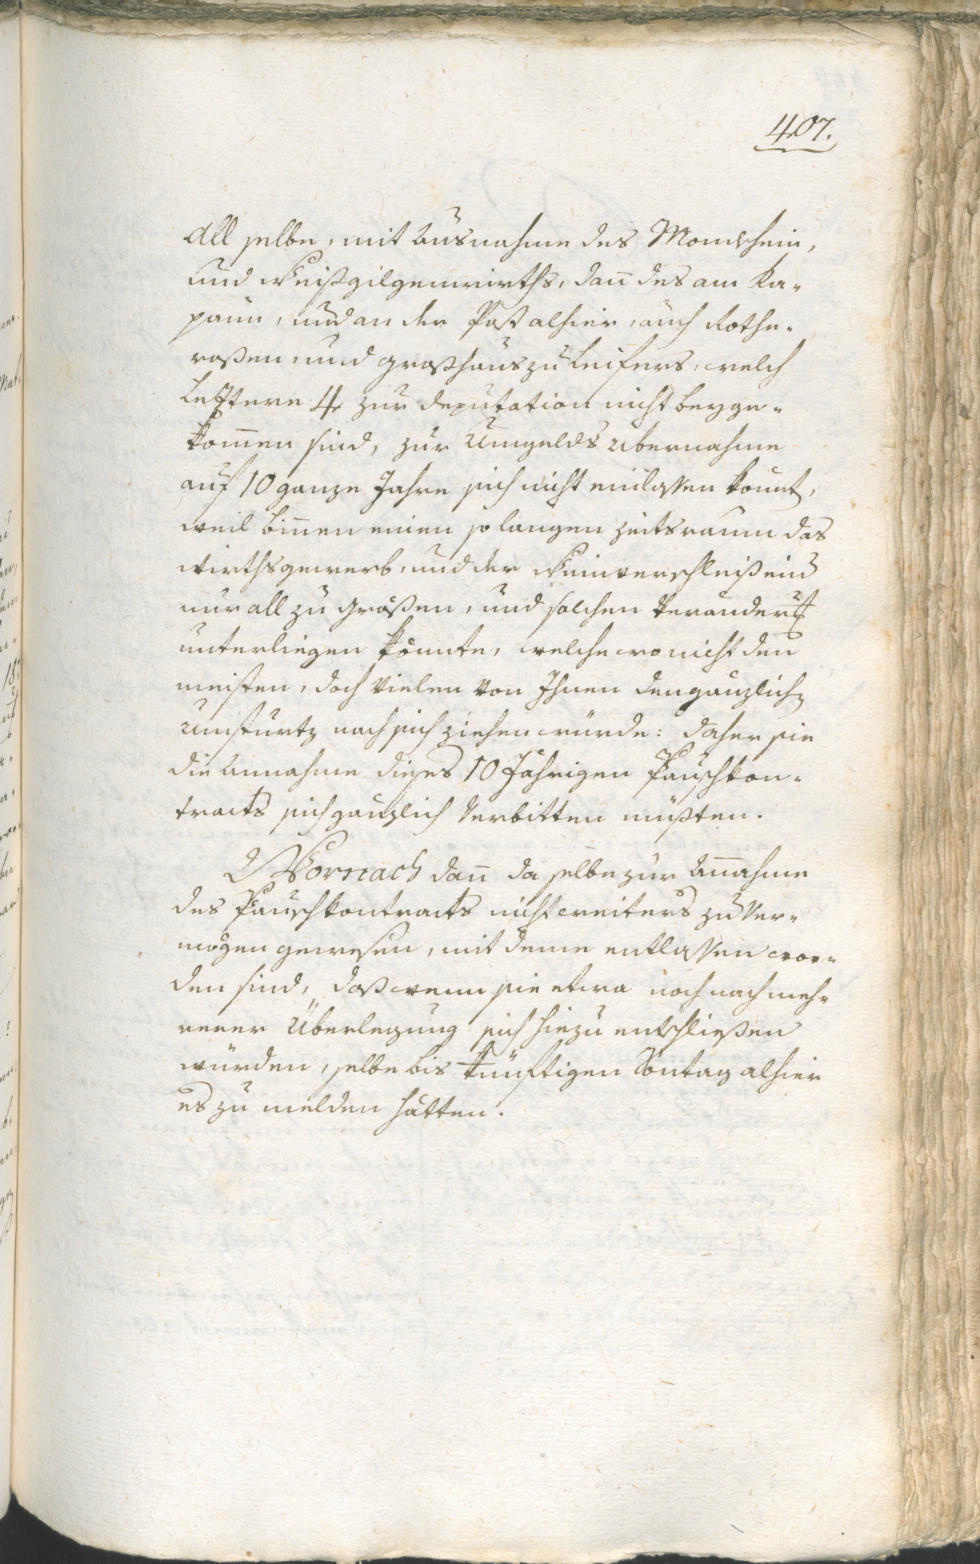 407.
all selbe, mit Ausnahme des Mondschein,
und Weißgilgenwirths, dañ des am Ka-
paun, und an der Post alhier, auch Rothe-
roßen, und Großhaus zu Leifers, welch
leztere 4 zur deputation nicht beyge-
kom̃en sind, zur Umgelds übernahme
auf 10 ganze Jahre sich nicht einlassen könnt,
weil biñen einen so langen Zeitsraum das
wirthsgewerb, und der Weinverschleiß eine
nur all zu großen, und solchen Veränder
unterliegen könnte, welche wo nicht den
meisten, doch vielen von Ihnen den gänzlich
Umsturtz nach sich ziehen würde: daher sie
die Annahme dieses 10 Jährigen Pauschkon-
tracts sich gänzlich verbitten müßten.
Wornach dañ da selbe zur Añahme
des Pauschkontracts nicht weiters zu ver-
mögen gewesen, mit deme entlassen wor-
den sind, daß wenn sie etwa noch nach meh-
rerer Überlegung sich hiezu entschließen
würden, selbe bis künftigen Sontag alhier
es zu melden hätten.